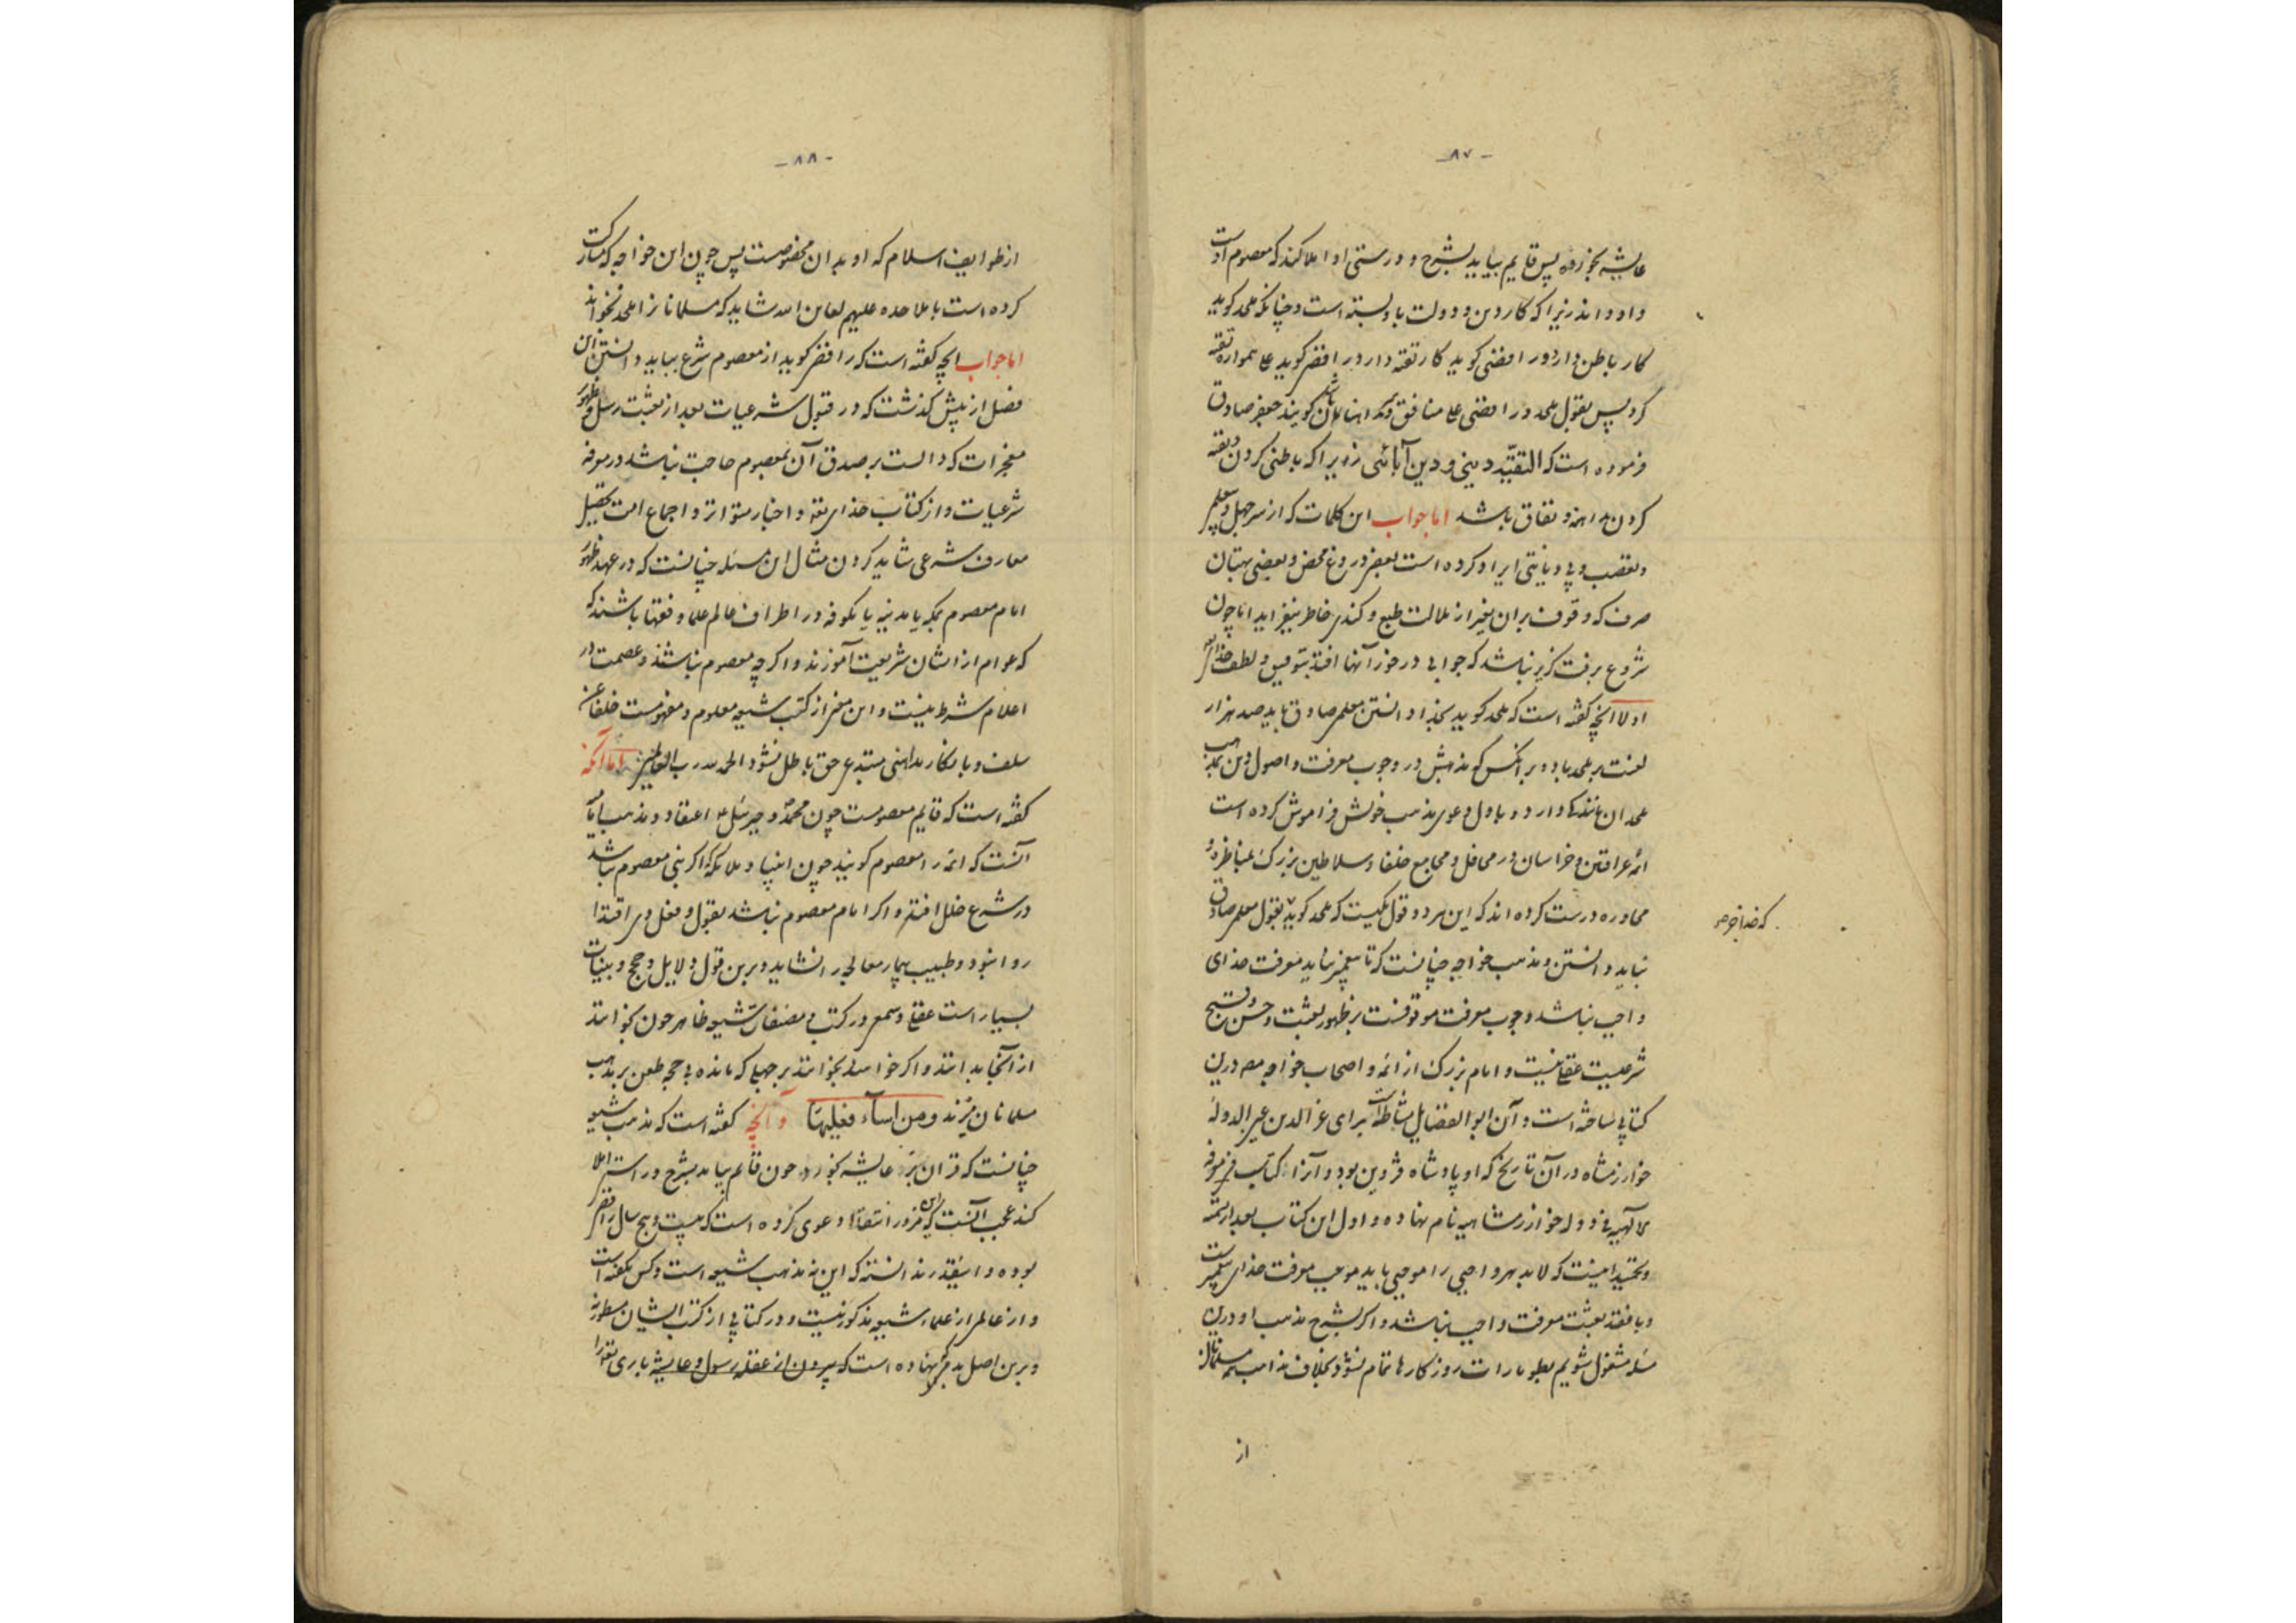 - ۸۷ -
عایشه بخورده پس قایم بیاید بشرح و درستی او املا کند که معصوم اوست
و او داند زیرا که کار دین و دولت باو بسته است و چنانکه ملحد کوید
کار باطن دارد و رافضی کوید کار تقیه دارد رافضی کوید علی همواره تقیه
کرد پس بقول ملحد و رافضی علی منافق و مداهن کویند جعفر صادق
فرموده است که التقیّه دینی و دین آبائی زیرا که باطنی کردن و تقیه
کردن مداهنه و نفاق باشد اما جواب این کلمات که از سر جهل و
و تعصب و بی دیانتی ایراد کرده است بعضی دروغ محض و بعضی بهتان
صرف که وقوف بران بغیر از ملالت طبع و کندی خاطر نیفزاید اما چون
شروع برفت کزیر نباشد که جوابی در خور آنها افتد بتوفیق و لطف خدای
اولا آنچه کفته است که ملحد کوید خدا دانستن معلم صادق باید صد هزار
لعنت بر ملحد باد و بر آنکس که مذهبش در وجوب معرفت و اصول دین بمذهب
ملحدان مانند کی دارد و باول دعوی مذهب خویش فراموش کرده است
ائمه عراقین و خراسان در محافل و مجامع خلفا و سلاطین بزرک بمناظره و
محاوره درست کرده اند که این هر دو قول یکیست که ملحد کوید بقول معلم صادق
که خدا جز
نباید دانستن و مذهب خواجه چنانست که تا پیغمبر نیاید معرفت خدای
واجب نباشد وجوب معرفت موقوفست بر ظهور بعثت و حسن و قبح
شرعیست عقلی نیست و امام بزرک از ائمه و اصحاب خواجه مصر درین
کتابی ساخته است و آن ابو الفضایل مشاط است برای عز الدین عین الدوله
خوارزمشاه در آن تاریخ که او پادشاه قزوین بود و آنرا کتاب فی معرفه
الالهیه فی دوله خوارزمشاهیه نام نهاده و اول این کتاب بعد از تسمیه
و تحمید اینست که لابد هر واجبی را موجبی باید موجب معرفت خدای پیغمبر است
و با فقد بعثت معرفت واجب نباشد و اکر بشرح مذهب او درین
مسئله مشغول شویم بطومارات روزکارها تمام نشود بخلاف مذاهب همه مسلمانان
از
- ۸۸ -
از طوایف اسلام که او بدان مخصوصست پس چون این خواجه که مشارکت
کرده است با ملاحده علیهم لعاین الله شاید که مسلمانان را ملحد نخواند
اما جواب آنچه کفته است که رافضی کوید از معصوم شرع بباید دانستن آن
فصل از پیش کذشت که در قبول شرعیات بعد از بعثت رسل و ظهور
معجزات که دالست بر صدق آن بمعصوم حاجت نباشد در معرفه
شرعیات و از کتاب خدای تعه و اخبار متواتر و اجماع امت تحصیل
معارف شرعی شاید کردن مثال این مسئله چنانست که در عهد ظهور
امام معصوم بمکه یا مدینه یا بکوفه در اطراف عالم علما و فقها باشند که
که عوام از ایشان شریعت آموزند و اکرچه معصوم نباشند و عصمت در
اعلام شرط نیست و این معنی از کتب شیعه معلوم و مفهومست خلفا عن
سلف و بانکار مداهنی مبتدع حق باطل نشود الحمد لله رب العالمین اما آنکه
کفته است که قایم معصومست چون محمد و جبرئیل اعتقاد و مذهب
آنست که ائمه را معصوم کویند چون انبیا و ملائکه که اکر نبی معصوم نباشد
در شرع خلل افتد و اکر امام معصوم نباشد بقول و فعل وی اقتدا
روا نبود و طبیب بیمار معالجی را نشاید و برین قول دلایل و حجج و بینات
بسیار است عقلی و سمعی در کتب و مصنفات شیعه ظاهر چون بخوانند
از آنجا بدانند و اکر خواهند بخوانند بر جهلی که مانده بی حجه طعن بر مذهب
مسلمانان میزنند و من اساء فعلیها و آنچه کفته است که مذهب شیعه
چنانست که قرآن بز عایشه بخورد چون قایم بیاید بشرح و راستی املا
کند عجب آنست که این مزور انتقالی دعوی کرده است که بیست و پنج سال رافضی
بوده و اینقدر ندانسته که این نه مذهب شیعه است و کس نکفته است
و از عالمی از علماء شیعه مذکور نیست و در کتابی از کتب ایشان مسطور نه
و برین اصل بد که نهاده است که بیرون از عقد رسول و عایشه باری تعه را